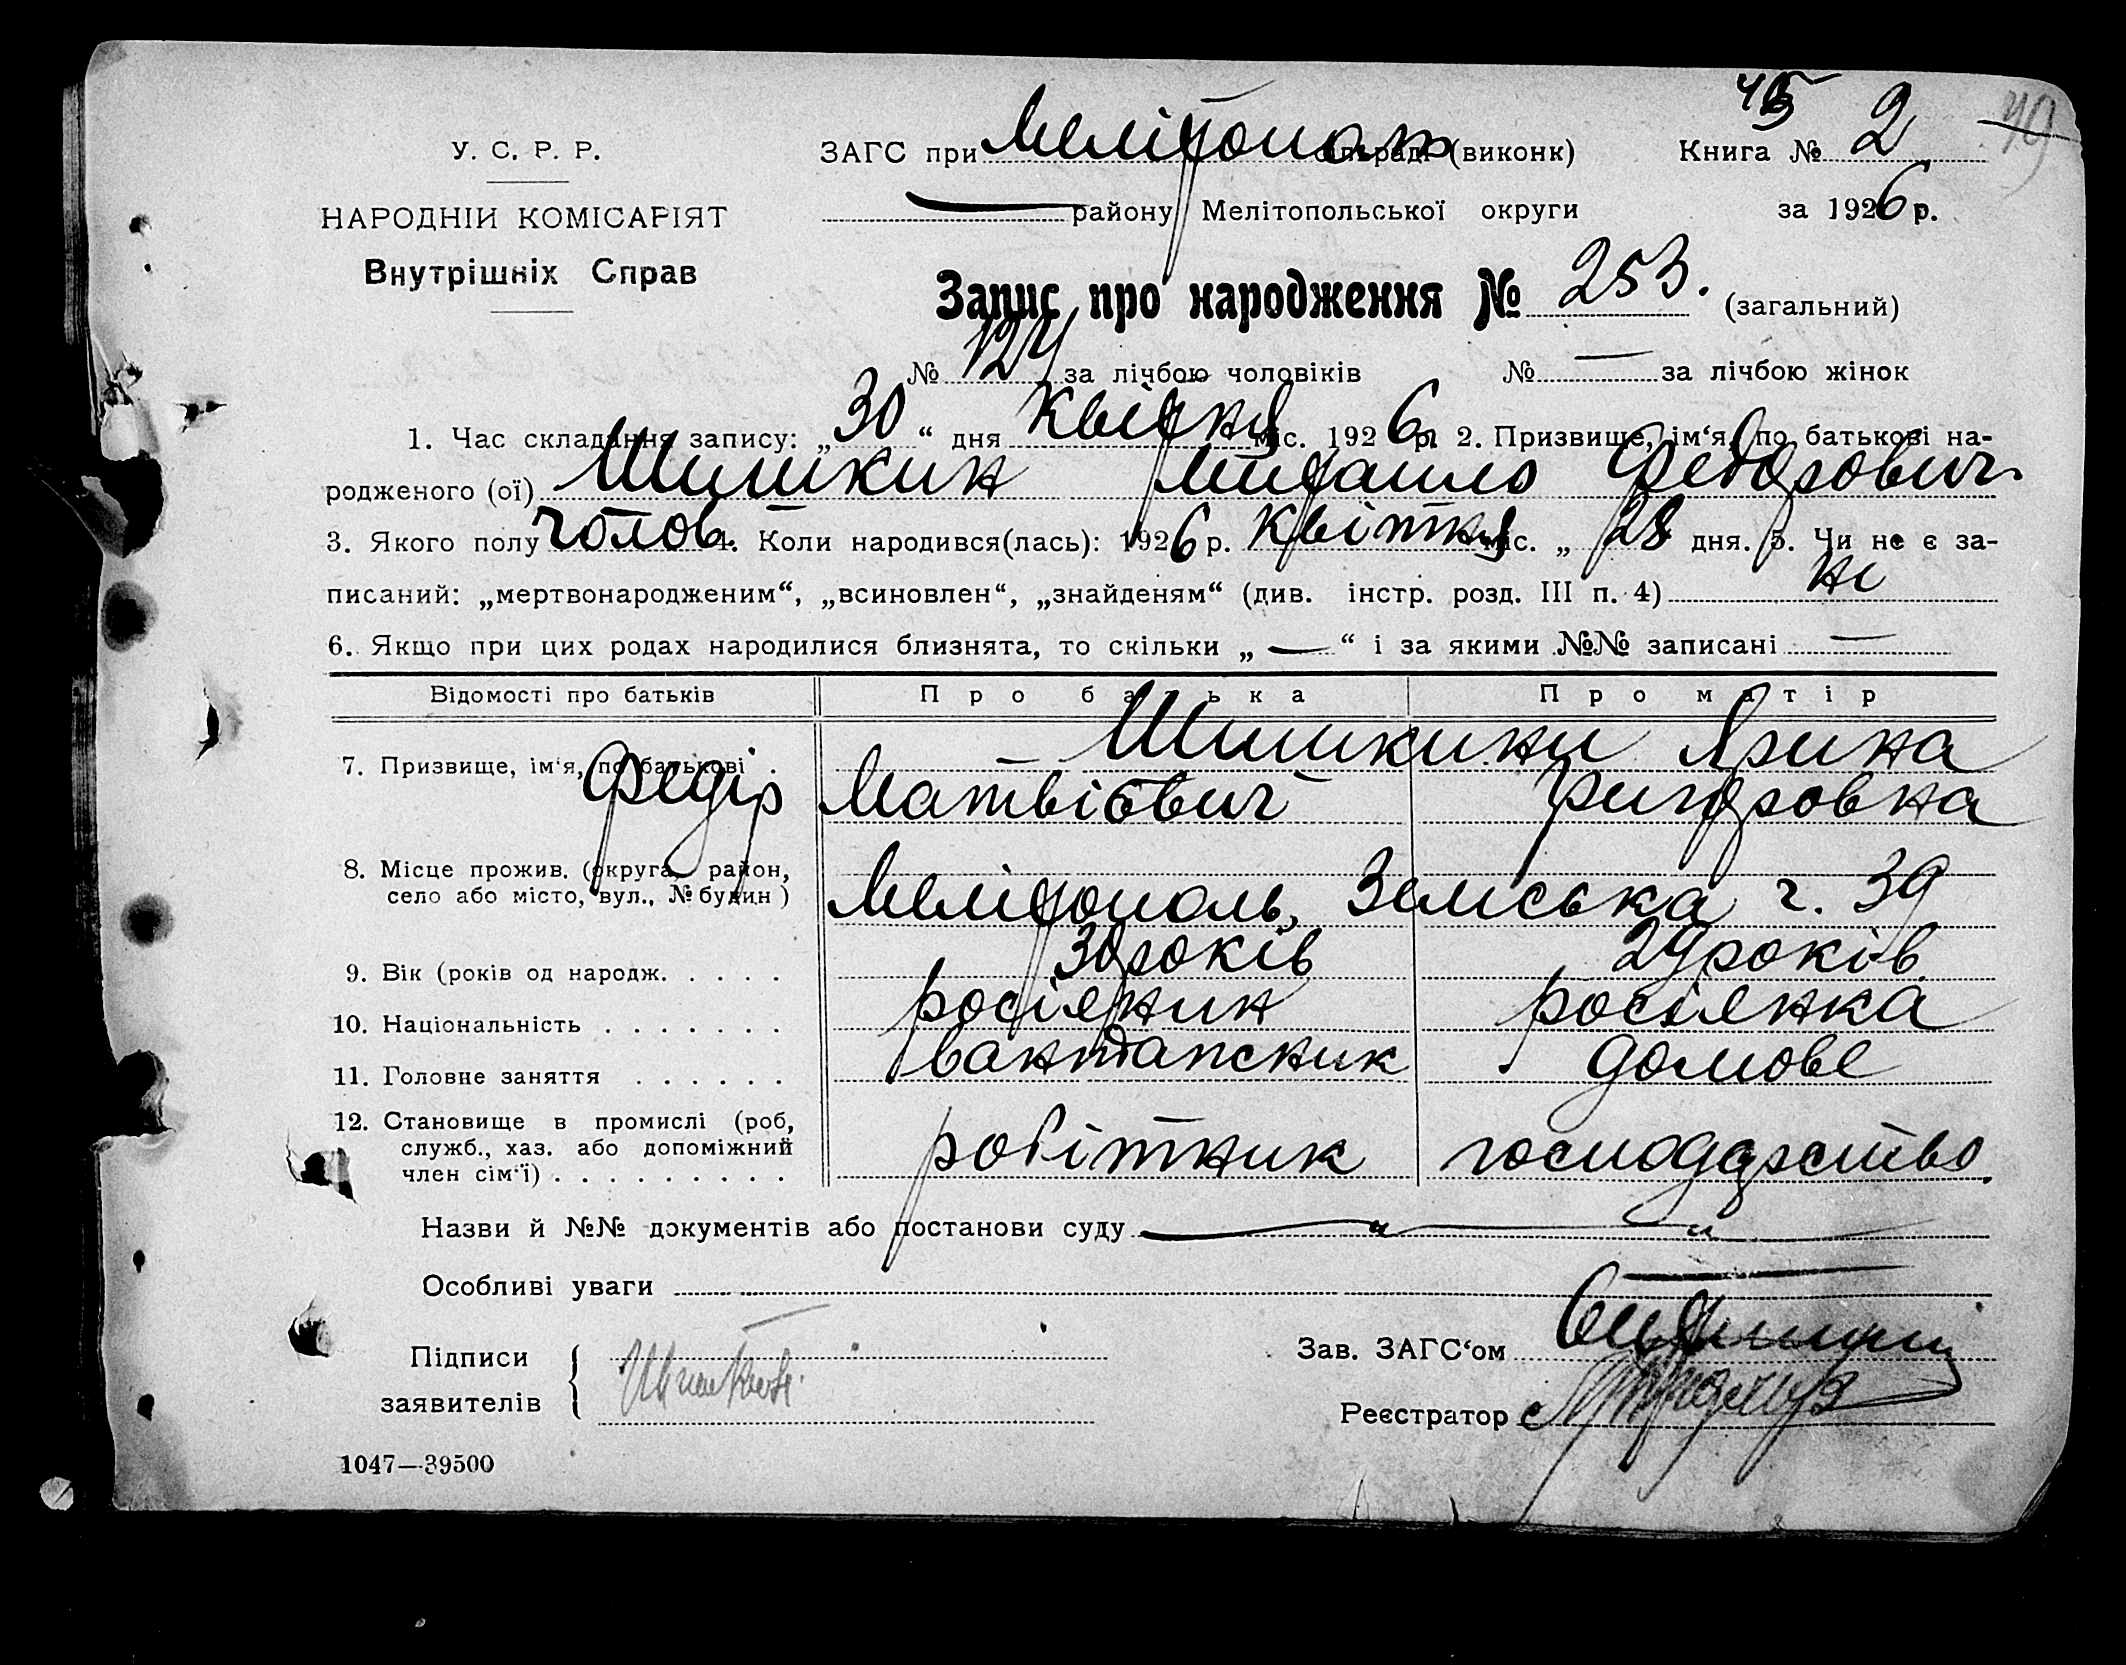 45
49
У. С. Р. Р.
ЗАГС при Меліто сільраді (виконк) Книга № 2
НАРОДНІЙ КОМІСАРІЯТ
— району Мелітопольської округи за 1926 р.
Внутрішніх Справ
Запис про народження № 253. (загальний)
№ 124 за лічбою чоловіків № — за лічбою жінок
1. Час складання запису: „30“ дня Квітня міс. 1926 р. 2. Призвище, ім‘я, по батькові на-
родженого (ої) Шишкин Михайло Федорович
3. Якого полу чолов. 4. Коли народився(лась): 1926 р. Квітня міс. „28 дня. 5. Чи не є за-
писаний: „мертвонародженим“, „всиновлен“, „знайденям“ (див. інстр. розд. III п. 4) ні
6. Якщо при цих родах народилися близнята, то скільки „—“ і за якими №№ записані —
Відомості про батьків Про батька Про матір
7. Призвище, ім‘я, по батькові . Шишкини Ярина
Федір Матвієвич Григоровна
8. Місце прожив. (округа, район,
село або місто, вул., № будин) Мелітополь, Земська ч. 39
9. Вік (років од народж. . . . . 30 років 29 років
10. Національність . . . . . . . росіянин росіянка
11. Головне заняття . . . . . . вантажник домове
12. Становище в промислі (роб,
служб., хаз. або допоміжний робітник господарство
член сім‘ї) . . . . . . . . . .
Назви й №№ документів або постанови суду — „ — „
Особливі уваги
Підписи
заявителів
Зав. ЗАГС‘ом
Реєстратор
1047—39500